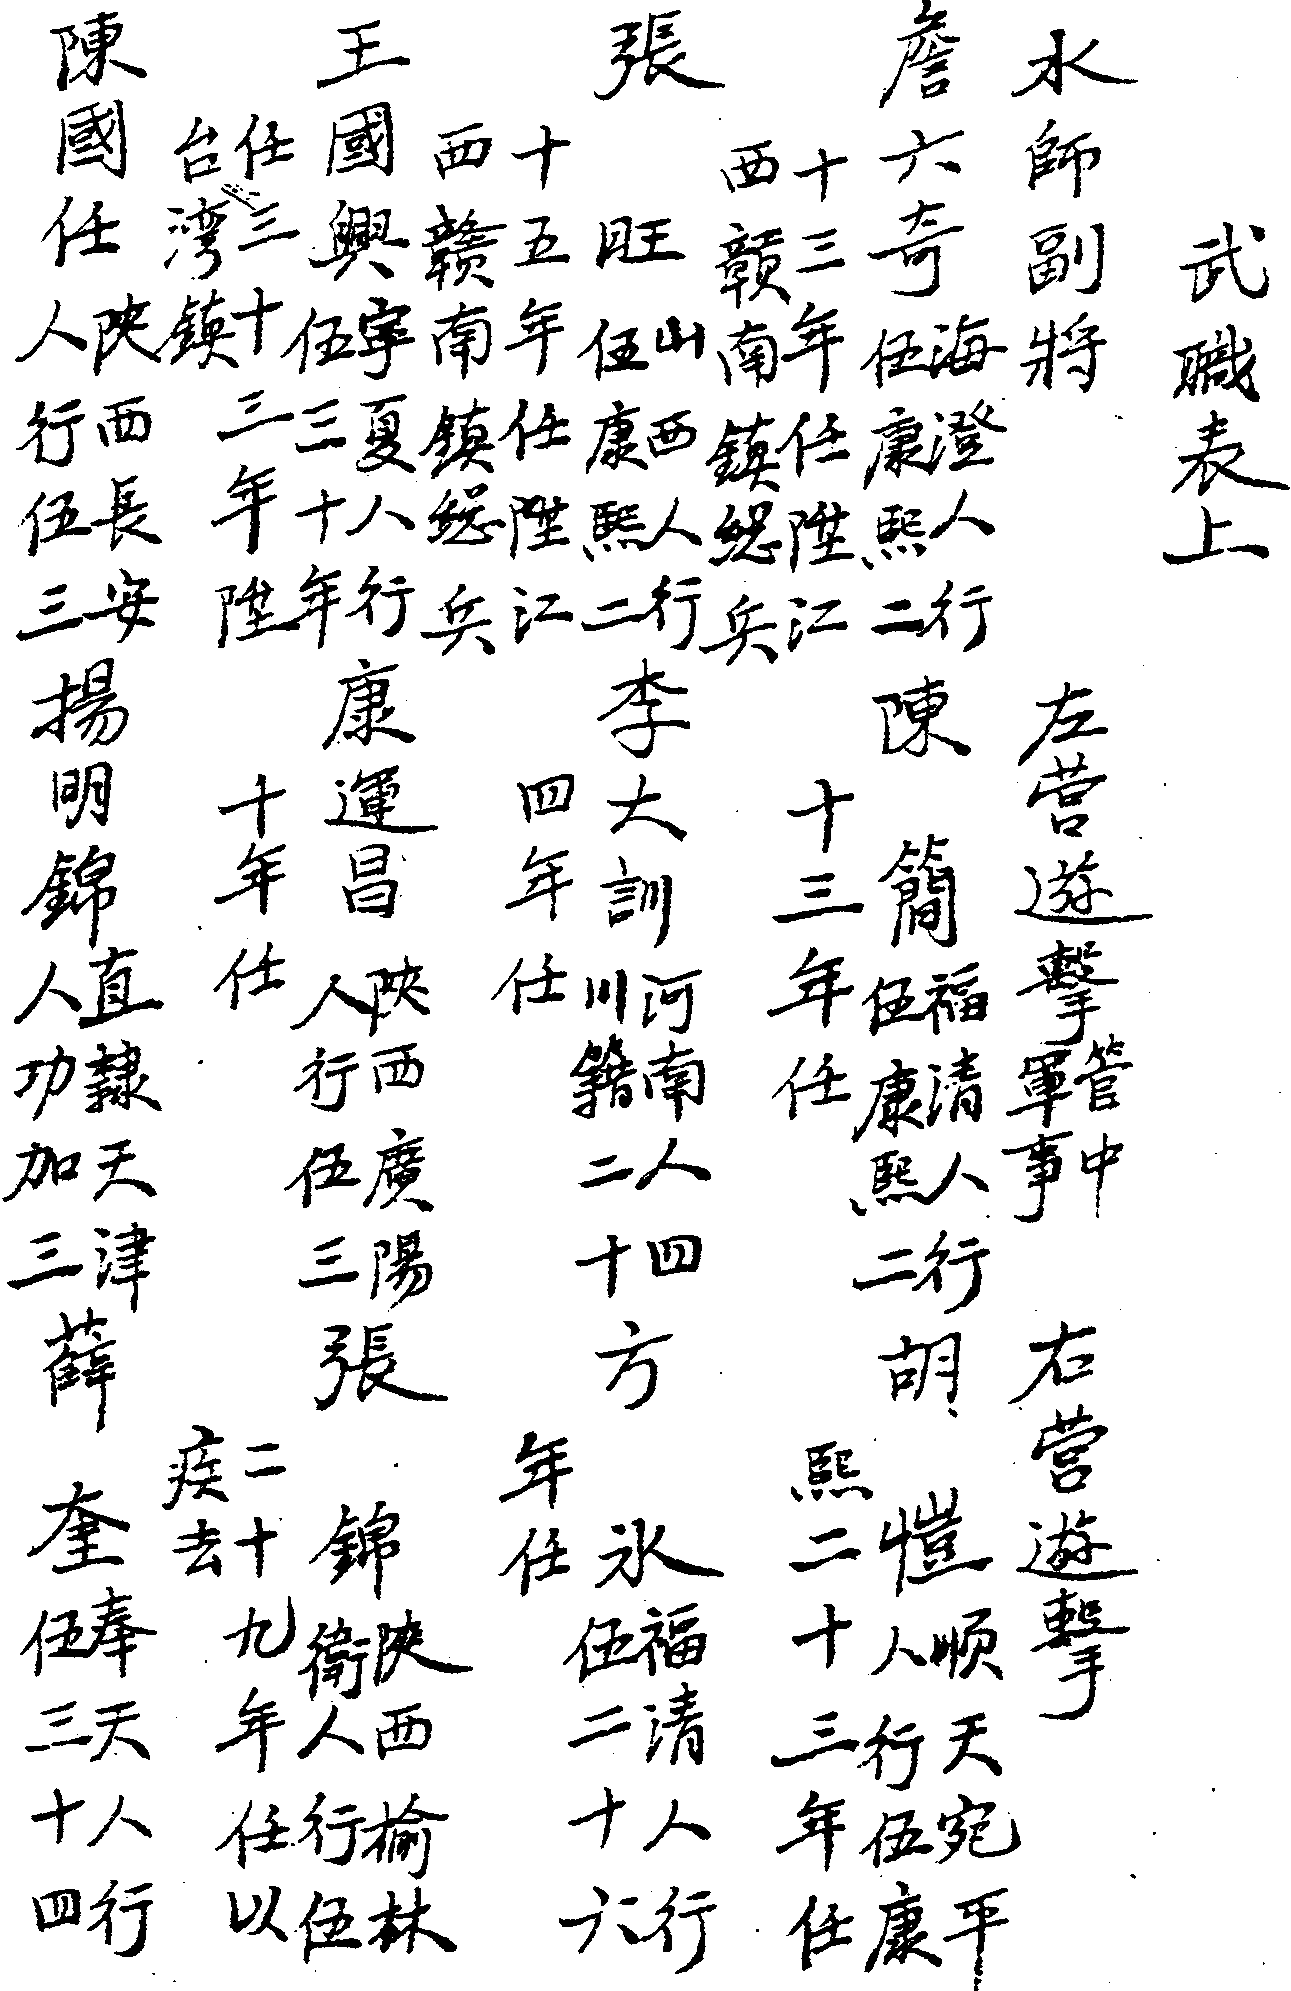 武職表上
水師副將
左營遊擊 管中軍事
右營遊擊
詹六奇 海澄人行伍康熙二十三年任陞江西贛南鎮總兵
陳簡 福清人行伍康熙二十三年任
胡愷 順天宛平人行伍康熙二十三年任
張旺 山西人行伍康熙二十五年任陞江西贛南鎮總兵
李大訓 河南人四川籍二十四年任
方永 福清人行伍二十六年任
王國興 寧夏人行伍三十年任三十三年陞台灣鎮
康運昌 陝西廣陽人行伍三十年任
張錦 陝西榆林衛人行伍二十九年任以疾去
陳國任 陝西長安人行伍三
揚明錦 直隸天津人功加三
薛奎 奉天人行伍三十四